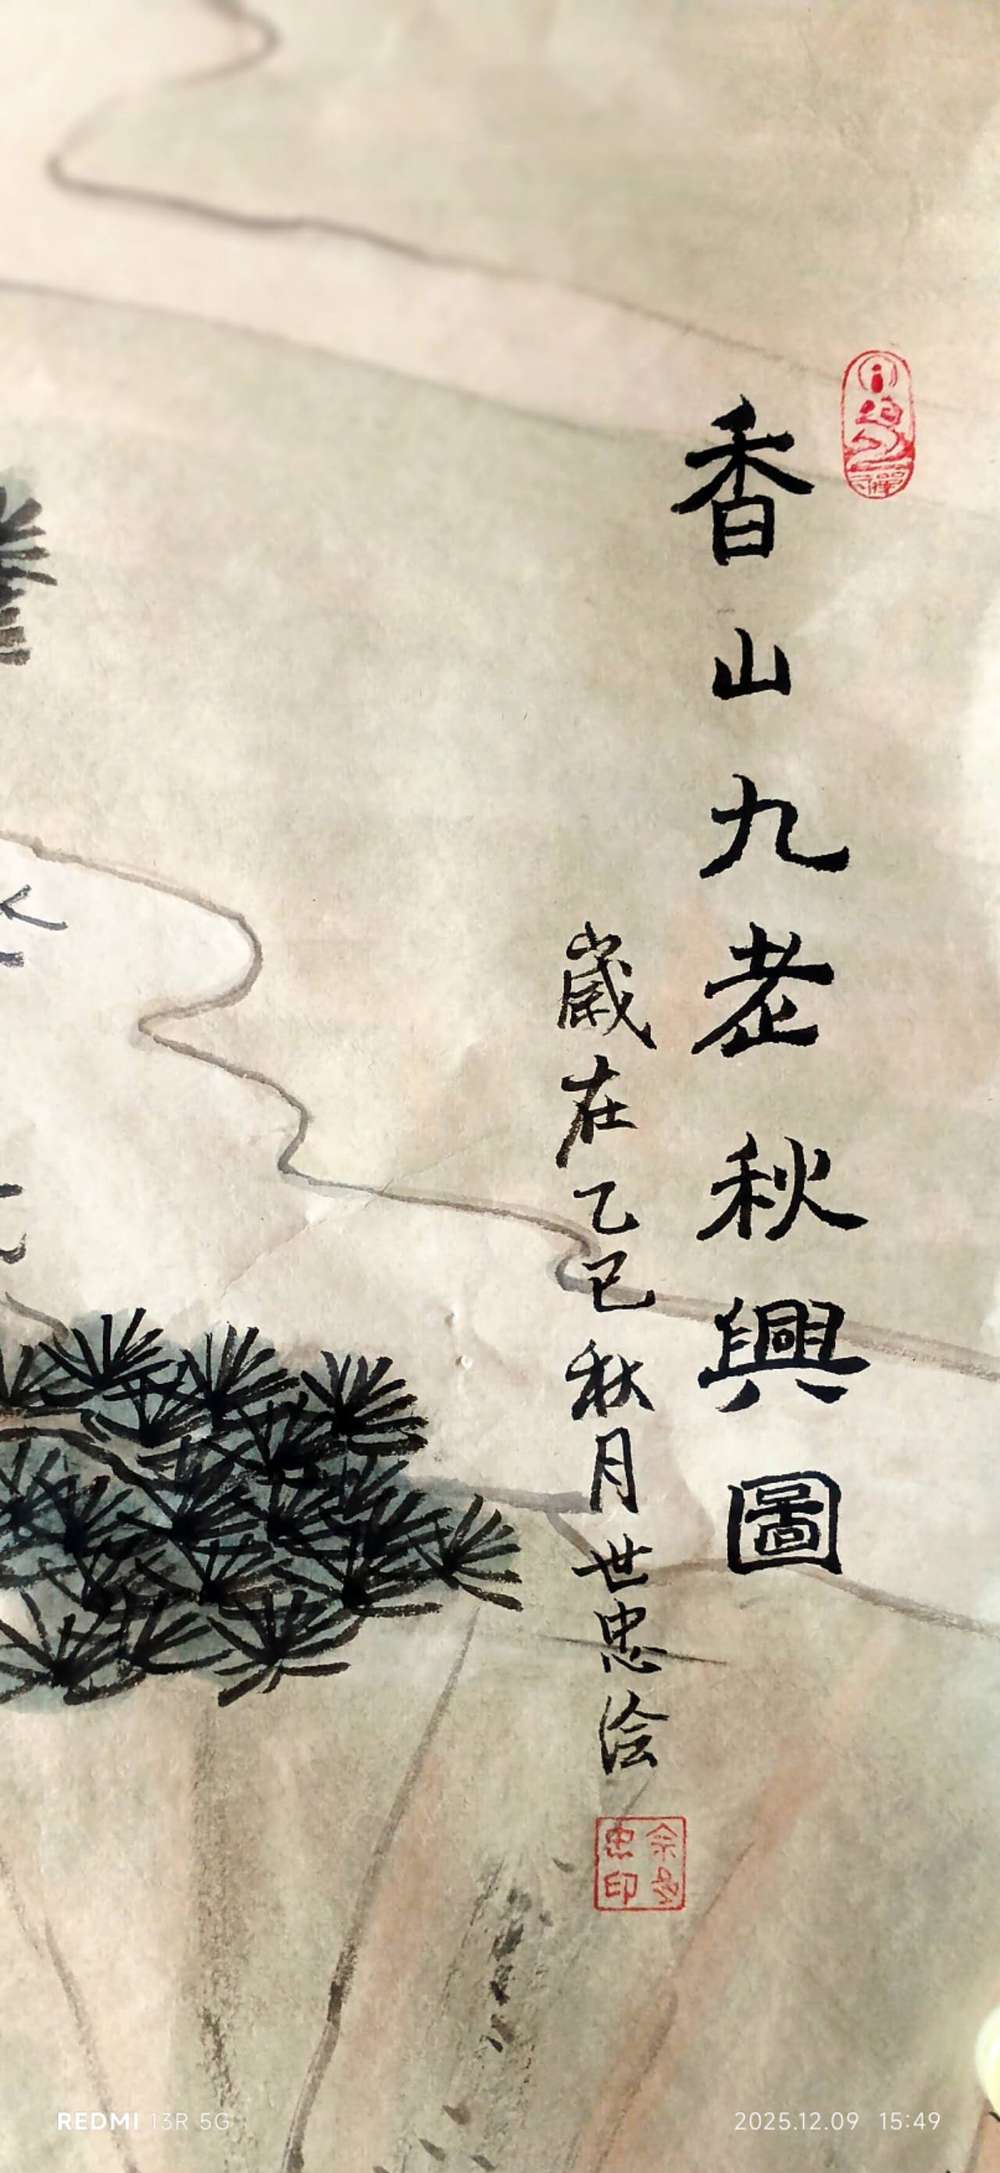 香山九老秋興圖
歲在乙巳秋月世忠绘
忠印
REDMI 13R 5G
2025.12.09 15:49